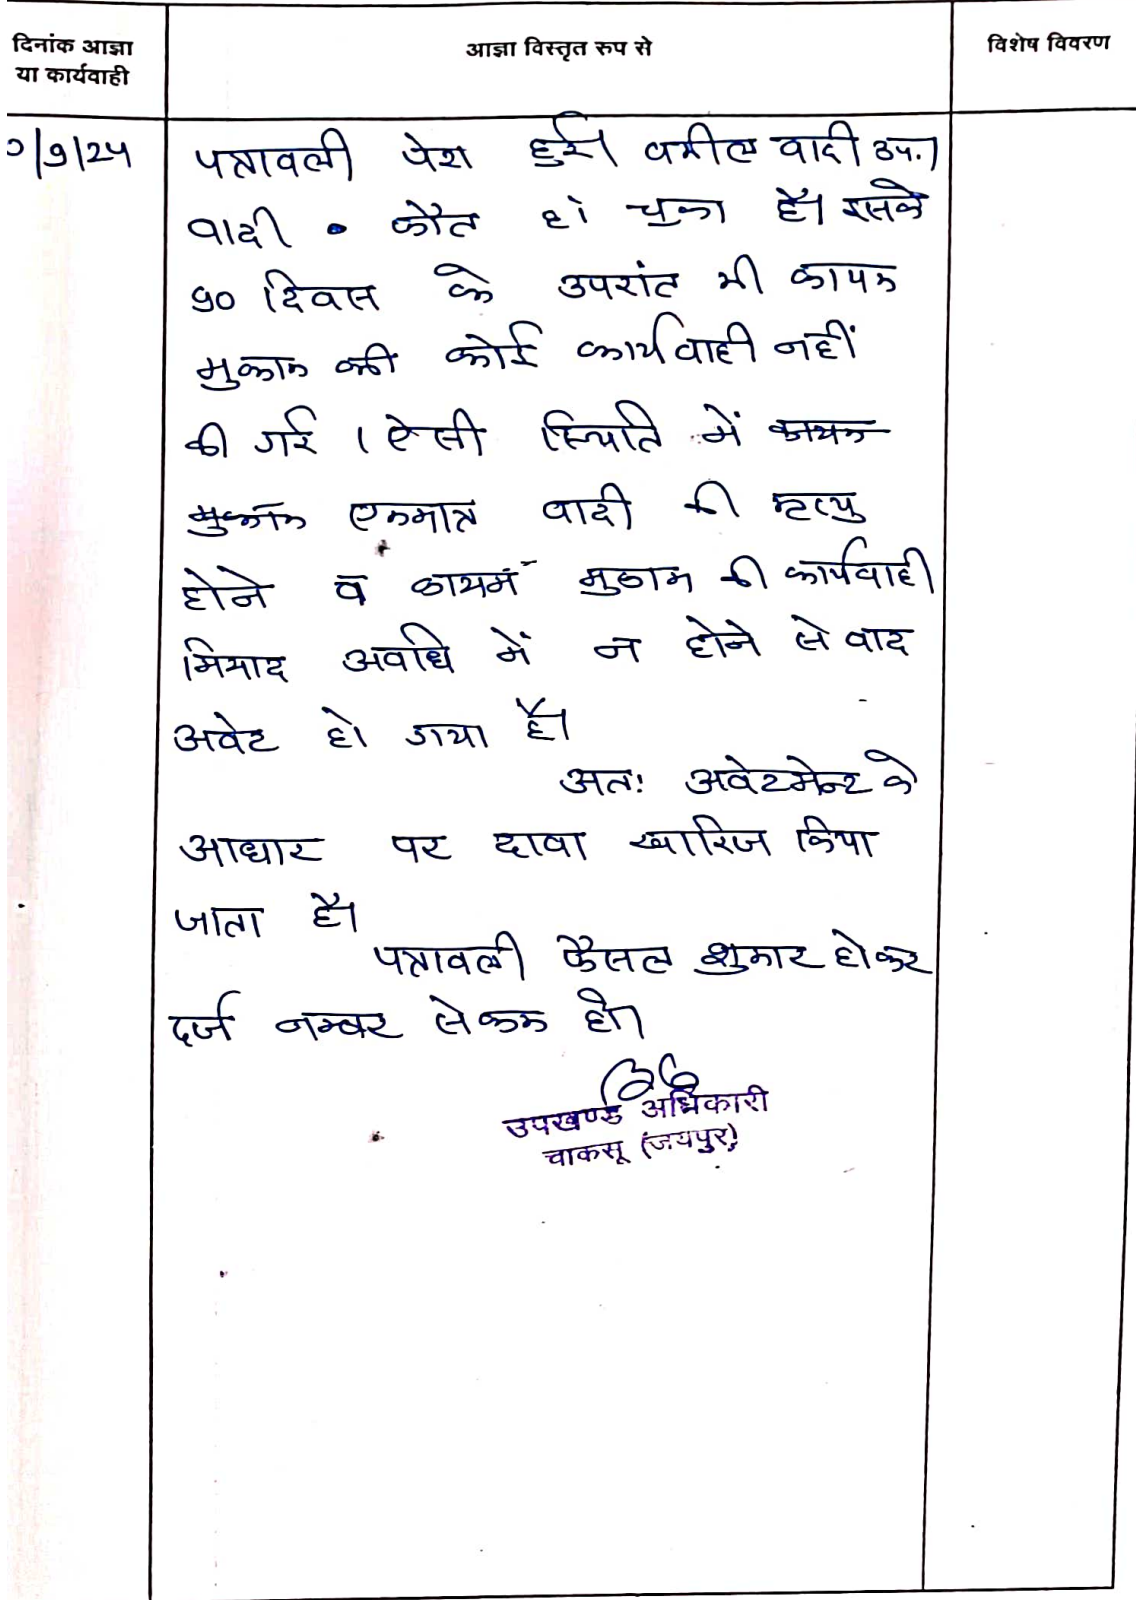 दिनांक आज्ञा
या कार्यवाही
आज्ञा विस्तृत रुप से
विशेष विवरण
०/9/24
पत्रावली पेश हुई। वकील वादी उप.।
वादी फौत हो चुका है। इसके
90 दिवस के उपरांत भी कायम
मुकाम की कोई कार्यवाही नहीं
की गई । ऐसी स्थिति में कायम
मुकाम एकमात्र वादी की मृत्यु
होने व कायमं मुकाम की कार्यवाही
मियाद अवधि में न होने से वाद
अवेट हो गया है।
अतः अवेटमेन्ट के
आधार पर दावा खारिज किया
जाता है।
पत्रावली फैसल शुमार होकर
दर्ज नम्बर से कम हो।
उपखण्ड अधिकारी
चाकसू (जयपुर)